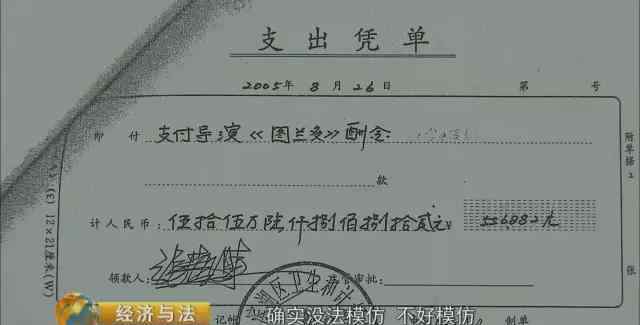 支出凭单
2005年 8月26日 第 号
即付 支付导演《图兰朵》酬金
款
计人民币：伍拾伍万陆仟捌佰捌拾贰元 ¥ 556882元
领款人： 审批：
附单据2
张
(E) 12×21厘米(W)
区卫生新
记帐
制单
经济与法
确实没法模仿 不好模仿